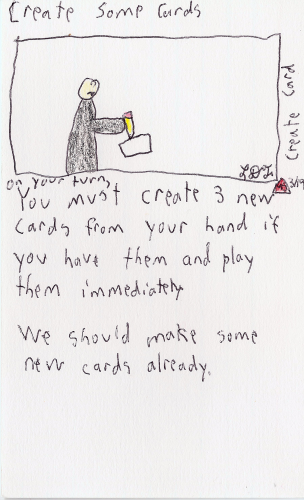 Create Some Cards
Create Card
3/19
on your turn,
You must create 3 new
cards from your hand if
you have them and play
them immediately
We should make some
new cards already.